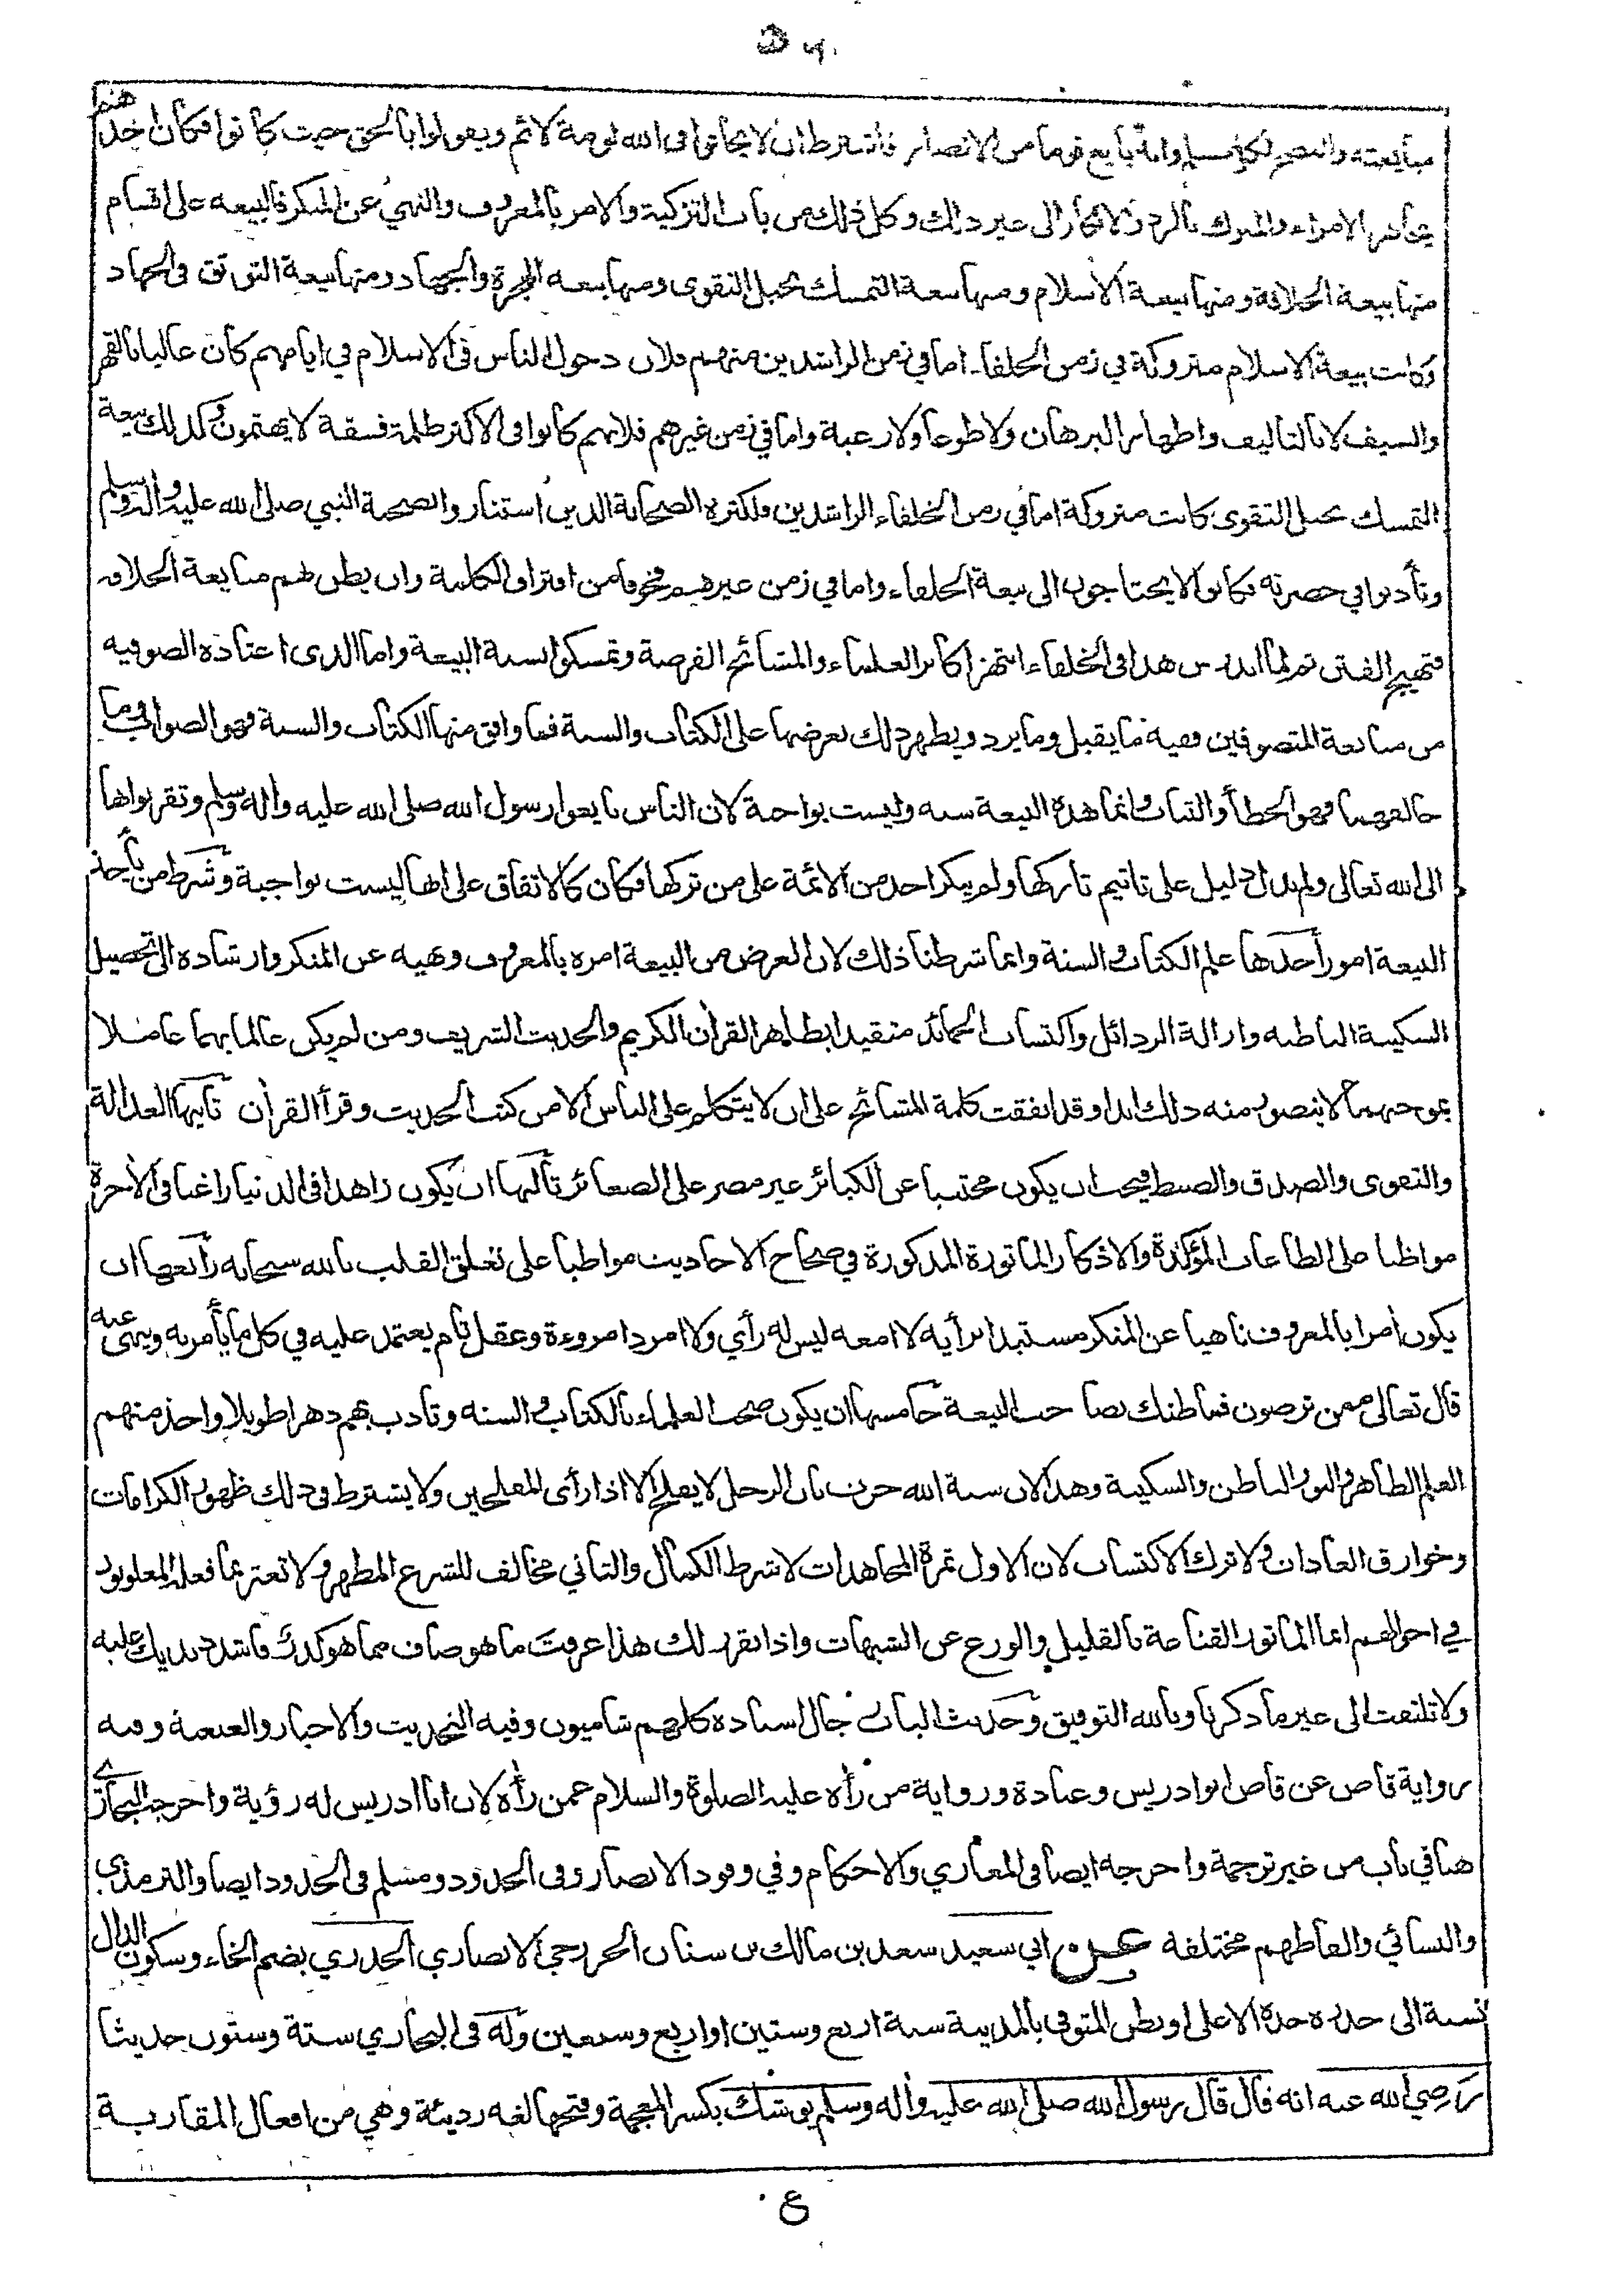 مبايعته والنصح لكل مسلم وانه بايع قوما من الانصار فاشترط ان لا يخافوا فى الله لومة لائم ويقولوا بالحق حيث كانوا فكان احدهم
يجاهر الامراء والملوك بالرد والانكار الى غير ذلك وكل ذلك من باب التزكية والامر بالمعروف والنهي عن المنكر فالبيعه على اقسام
منها بيعة الخلافة ومنها بيعة الاسلام ومنها بيعة التمسك بحبل التقوى ومنها بيعه الهجرة والجهاد ومنها بيعة التوثق فى الجهاد
وكانت بيعة الاسلام متروكة في زمن الخلفاء اما في زمن الراشدين منهم فلان دخول الناس فى الاسلام في ايامهم كان غالبا بالقهر
والسيف لا بالتاليف واظهار البرهان ولا طوعا ولا رغبة واما في زمن غيرهم فلانهم كانوا فى الاكثر ظلمة فسقة لا يهتمون وكذلك بيعة
التمسك بحبل التقوى كانت متروكة اما في زمن الخلفاء الراشدين فلكثرة الصحابة الذين استناروا بصحبة النبي صلى الله عليه واله وسلم
وتأدبوا في حضرته فكانوا لا يحتاجون الى بيعة الخلفاء واما في زمن غيرهم فخوفا من افتراق الكلمة وان يظن بهم مبايعة الخلافه
فتهيج الفتن ثم لما اندرس هذا فى الخلفاء انتهز اكابر العلماء والمشائخ الفرصة وتمسكوا بسنة البيعة واما الذى اعتاده الصوفيه
من مبايعة المتصوفين ففيه ما يقبل وما يرد ويظهر ذلك بعرضها على الكتاب والسنة فما وافق منها الكتاب والسنة فهو الصواب وما
خالفهما فهو الخطأ والتباب وانما هذه البيعة سنه وليست بواجبة لان الناس بايعوا رسول الله صلى الله عليه واله وسلم وتقربوا بها
الى الله تعالى ولم يدل دليل على تاثيم تاركها ولم ينكر احد من الائمة على من تركها فكان كالاتفاق على انها ليست بواجبة وشرط من يأخذ
البيعة امور أحدها علم الكتاب والسنة وانما شرطنا ذلك لان الغرض من البيعة امره بالمعروف ونهيه عن المنكر وارشاده الى تحصيل
السكينة الباطنه وازالة الرذائل واكتساب الحمائد متقيدا بظاهر القرأن الكريم والحديث الشريف ومن لم يكن عالما بهما عاملا
بموجبهما لا يتصور منه ذلك ابدا وقد اتفقت كلمة المشائخ على ان لا يتكلم على الناس الا من كتب الحديث وقرأ القرأن ثانيها العدالة
والتقوى والصدق والضبط فيجب ان يكون مجتنبا عن الكبائر غير مصر على الصغائر ثالثها ان يكون زاهدا فى الدنيا راغبا فى الأخرة
مواظبا على الطاعات المؤكدة والاذكار الماثورة المذكورة في صحاح الاحاديث مواظبا على تعلق القلب بالله سبحانه رابعها ان
يكون أمرا بالمعروف ناهيا عن المنكر مستبدا برأيه لا امعه ليس له رأي ولا امر ذا مروءة وعقل تام يعتمد عليه في كل ما يأمر به وينهى عنه
قال تعالى ممن ترضون فما ظنك بصاحب البيعة خامسها ان يكون صحب العلماء بالكتاب والسنه وتادب بهم دهرا طويلا واخذ منهم
العلم الظاهر والنور الباطن والسكينة وهذا لان سنة الله جرت بان الرجل لا يفلح الا اذا رأى المفلحين ولا يشترط فى ذلك ظهور الكرامات
وخوارق العادات ولا ترك الاكتساب لان الاول ثمرة المجاهدات لا شرط الكمال والثاني مخالف للشرع المطهر ولا تغتر بما فعله المغلوبون
في احوالهم انما الماثور القناعة بالقليل والورع عن الشبهات واذا تقرر لك هذا عرفت ما هو صاف مما هو كدر فاشدد يديك عليه
ولا تلتفت الى غير ما ذكرنا وبالله التوفيق وحديث الباب رجال اسناده كلهم شاميون وفيه التحديث والاخبار والعنعنة وفيه
رواية قاص عن قاص ابو ادريس وعبادة ورواية من رأه عليه الصلوة والسلام عمن رأه لان ابا ادريس له رؤية واخرجه البخارى
هنا في باب من غير ترجمة واخرجه ايضا فى المغازي والاحكام وفي وفود الانصار وفى الحدود ومسلم فى الحدود ايضا والترمذى
والنسائي والفاظهم مختلفه عن ابي سعيد سعد بن مالك بن سنان الخزرجي الانصاري الخدري بضم الخاء وسكون الدال
نسبة الى خدره جده الاعلى او بطن المتوفى بالمدينة سنة اربع وستين او اربع وسبعين وله فى البخاري ستة وستون حديثا
رضي الله عنه انه قال قال رسول الله صلى الله عليه وأله وسلم يوشك بكسر المعجمة وفتحها لغه رديئة وهي من افعال المقاربة
ع